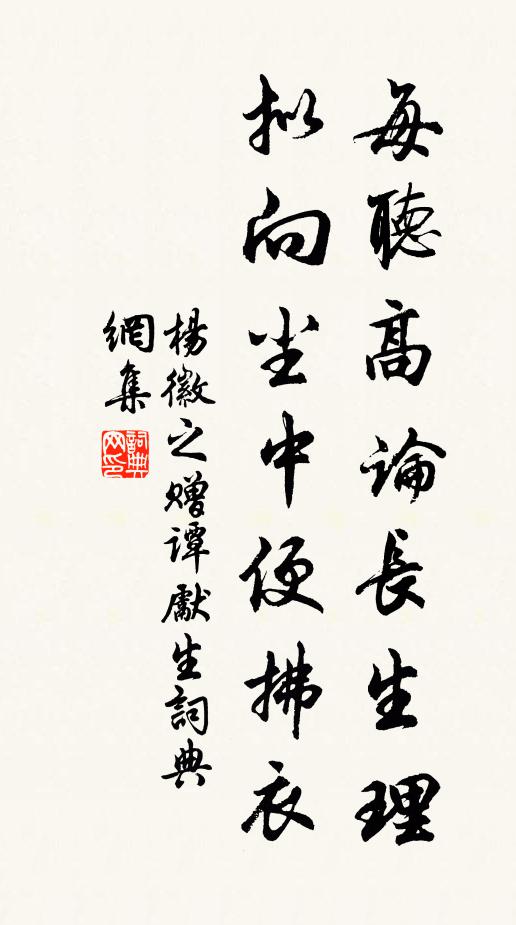 每聽高論長生理
拟向尘中便拂衣
楊徽之贈譚獻生詞典
網集
詞典
网印